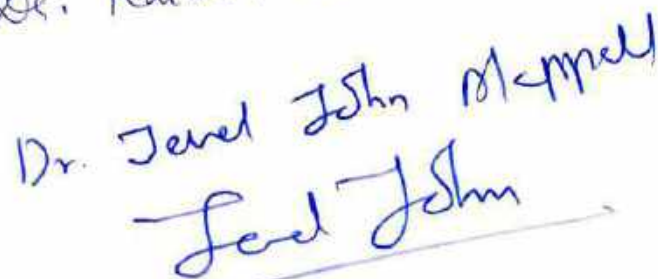 Dr.
Dr. Jewel John Mappell
Jewel John